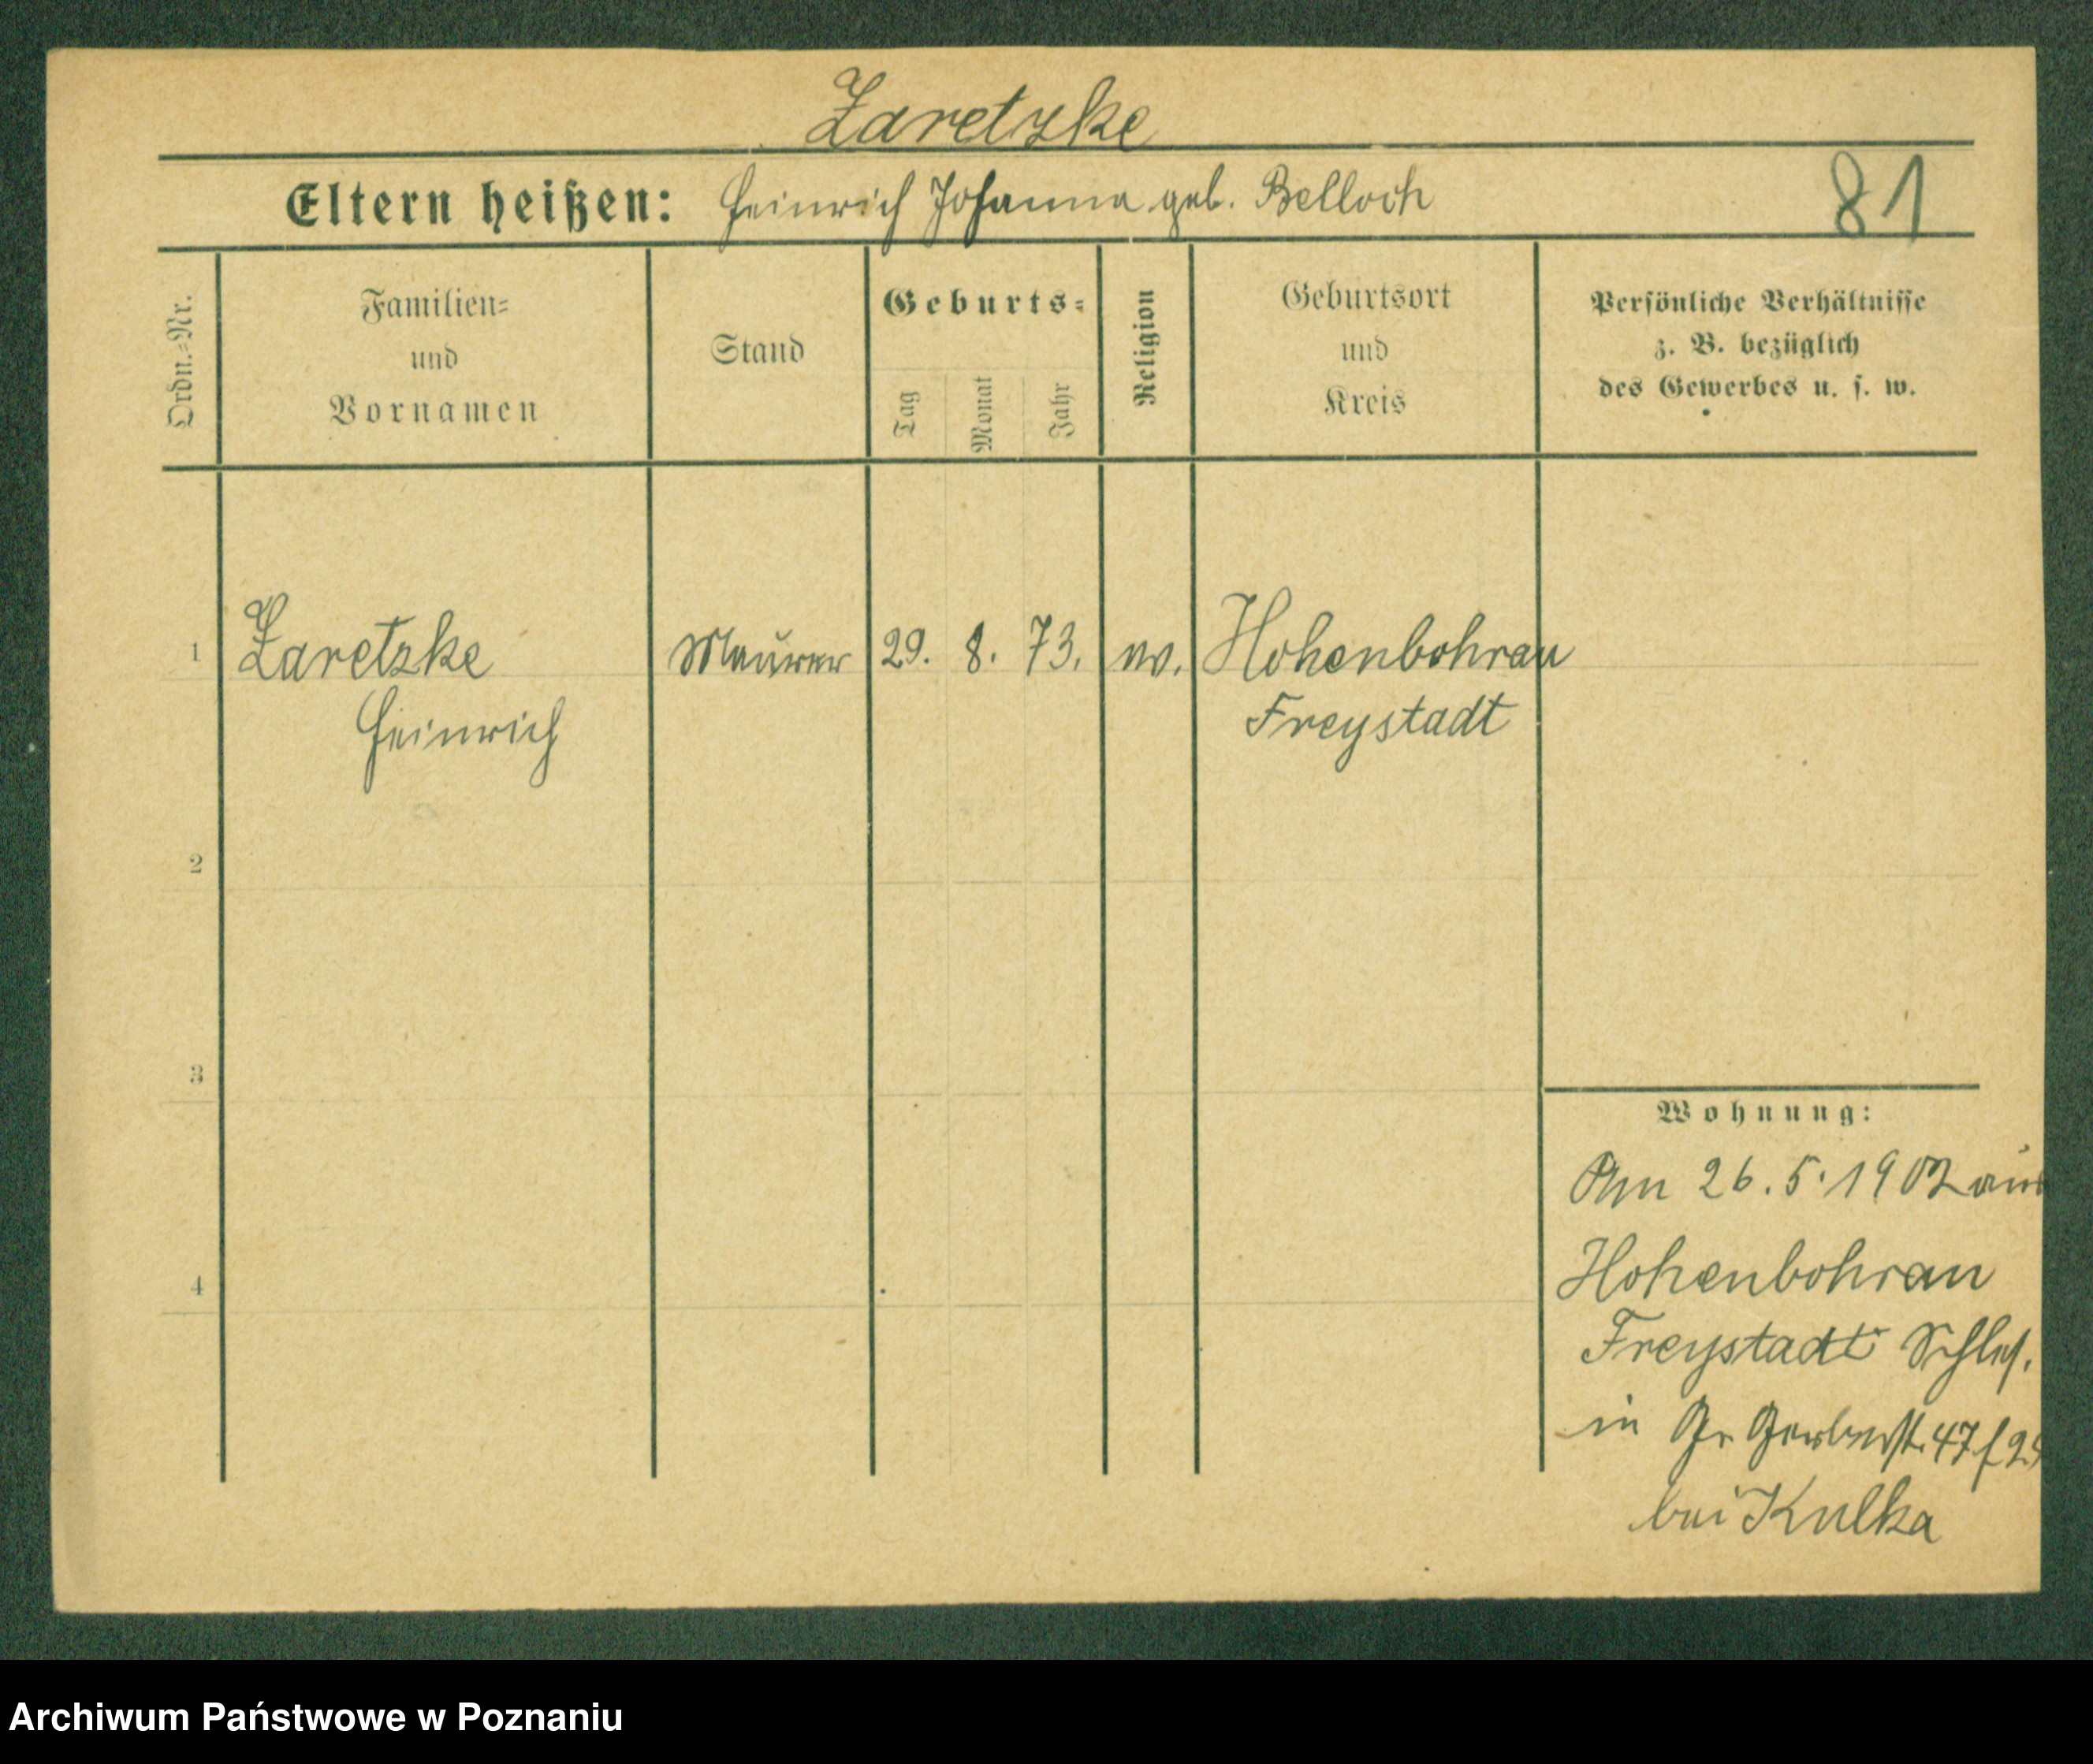 Zaretzke
Eltern heißen: Heinrich Johanna geb. Belloch
81
Ordn.-Nr.
Familien-
und
Vornamen
Stand
Geburts-
Tag
Monat
Jahr
Religion
Geburtsort
und
Kreis
Persönliche Verhältnisse
z. B. bezüglich
des Gewerbes u. s. w.
1 Zaretzke Maurer 29. 8. 73. Hohenbohrau
Heinrich Freystadt
2
3
4
Wohnung:
Am 26. 5. 1902 aus
Hohenbohrau
Freystadt Schles.
in Gr Gerberst. 47
bei Kulka
Archiwum Państwowe w Poznaniu